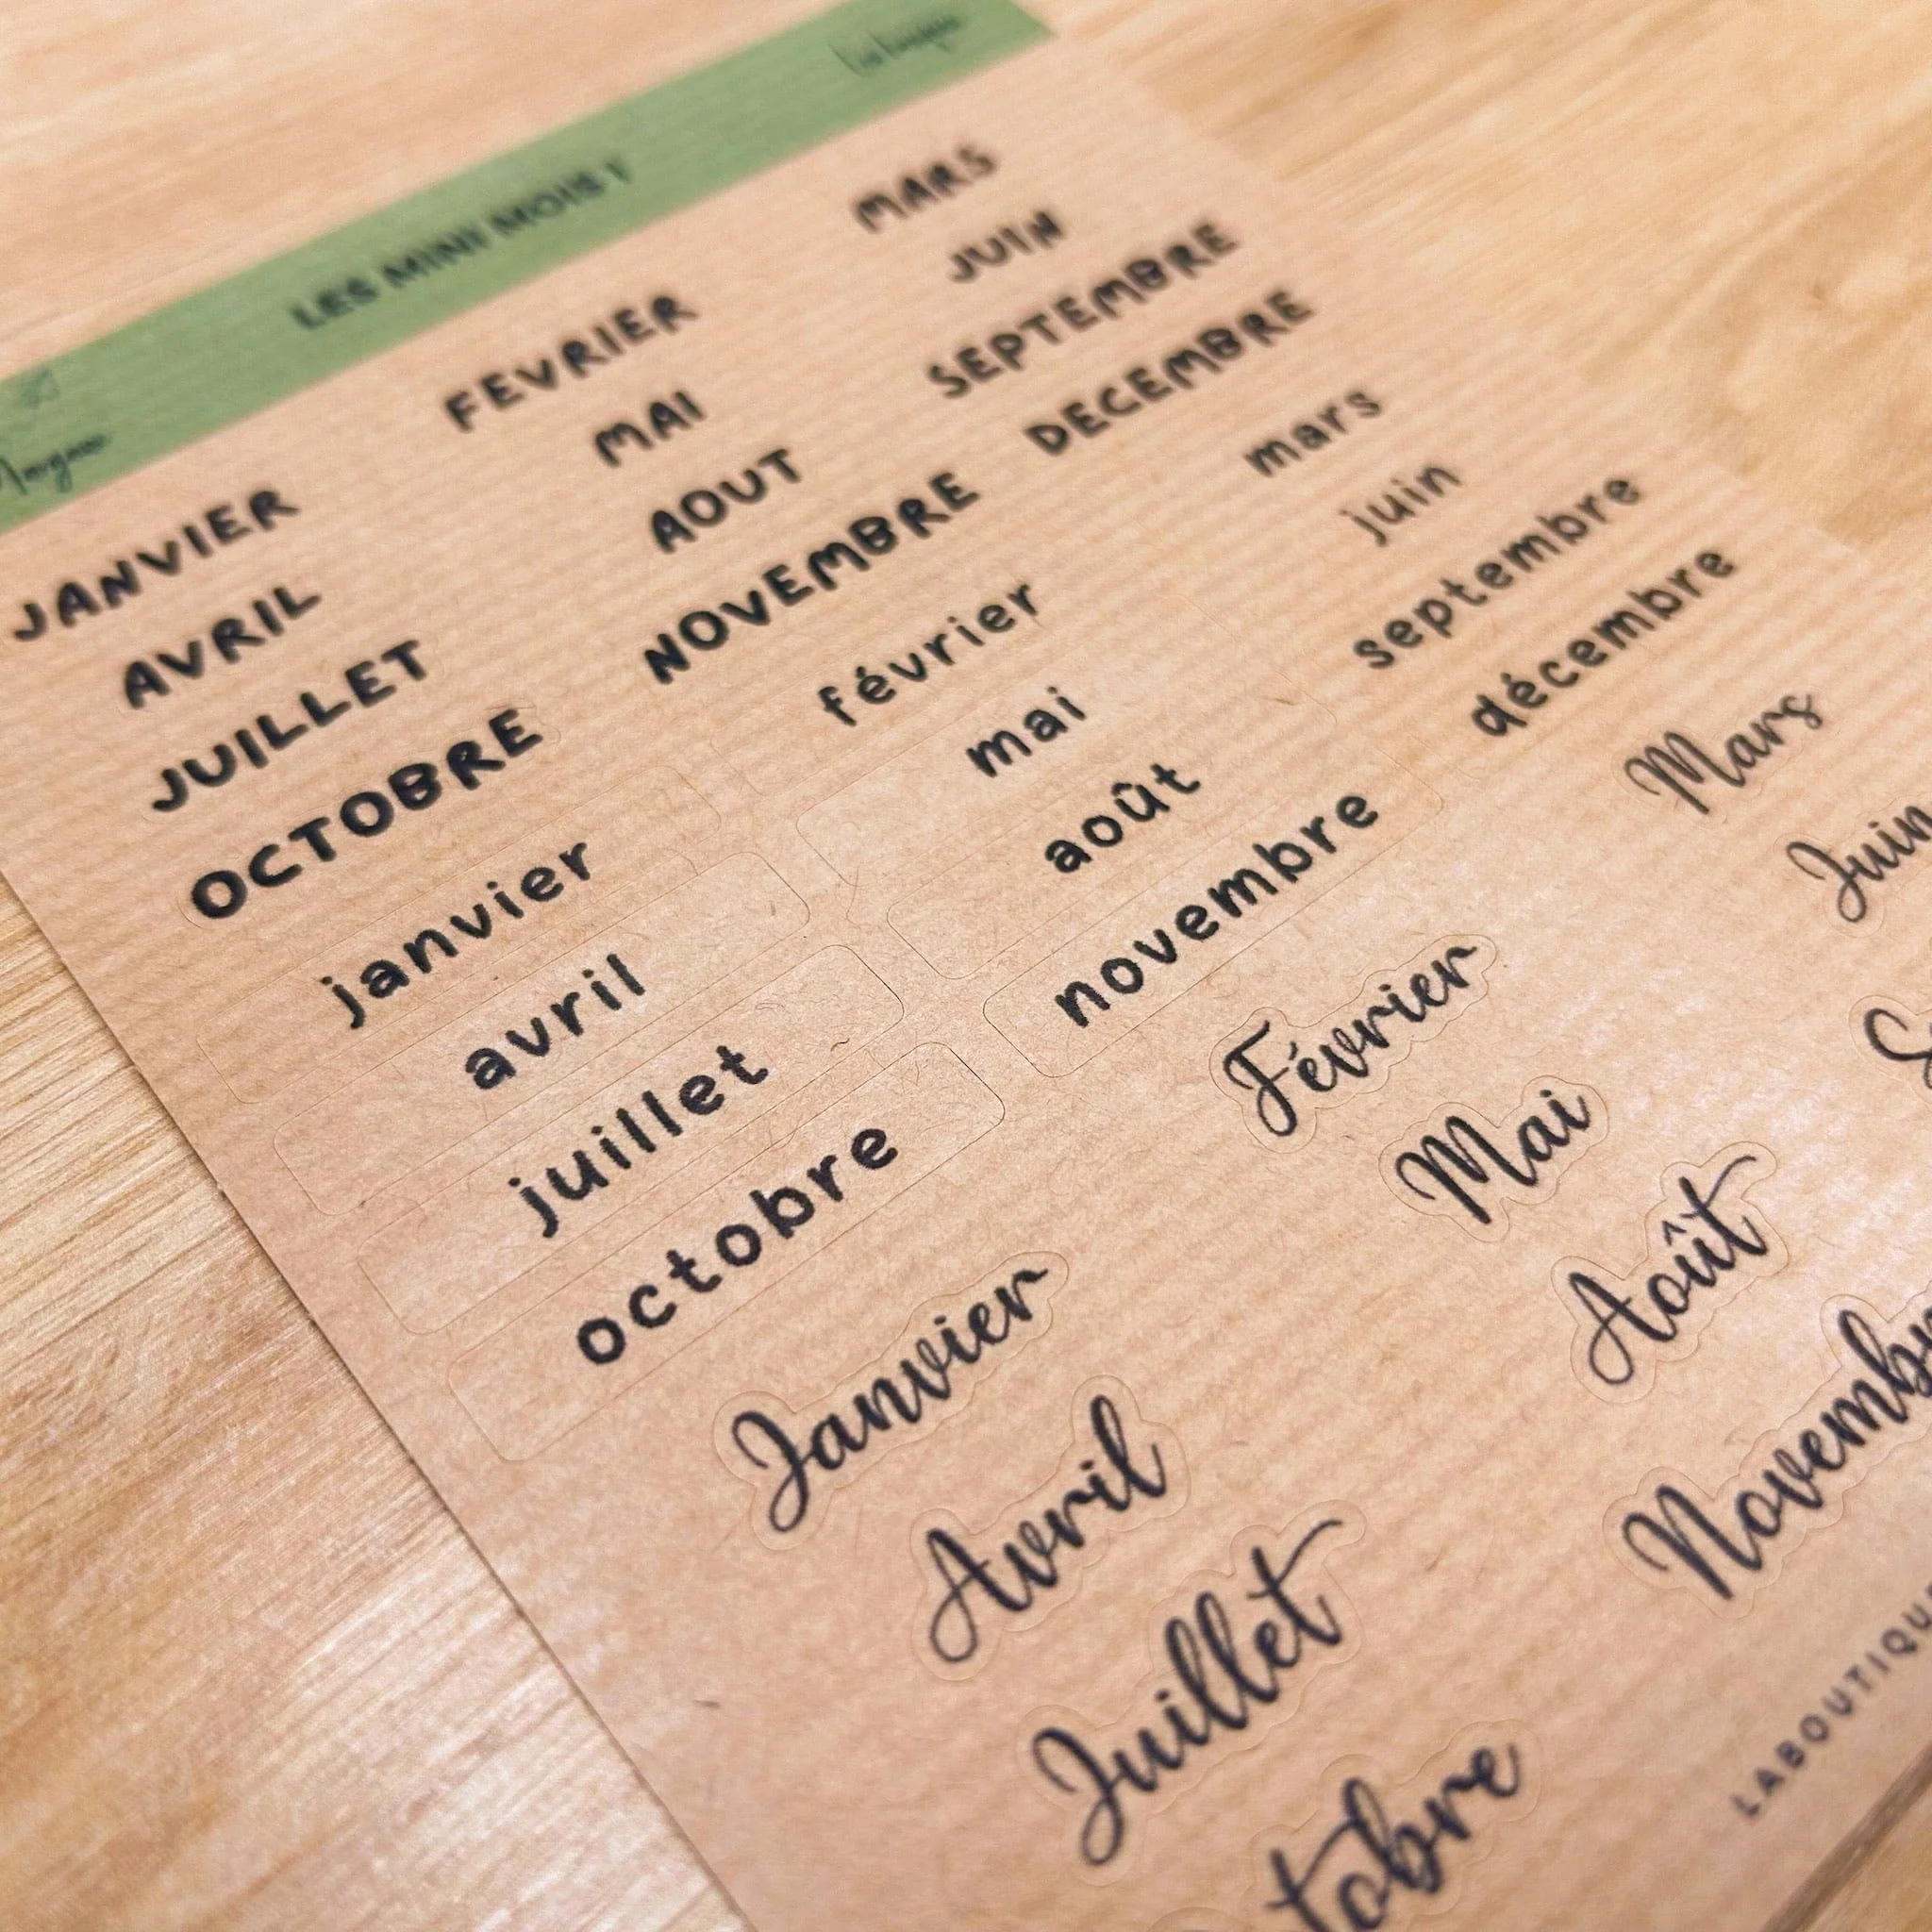 LES MINI MOIS !
JANVIER FEVRIER MARS
AVRIL MAI JUIN
JUILLET AOUT SEPTEMBRE
OCTOBRE NOVEMBRE DECEMBRE
janvier février mars
avril mai juin
juillet août septembre
octobre novembre décembre
Janvier Février Mars
Avril Mai Juin
Juillet Août S
tobre Novemb
LABOUTIQU